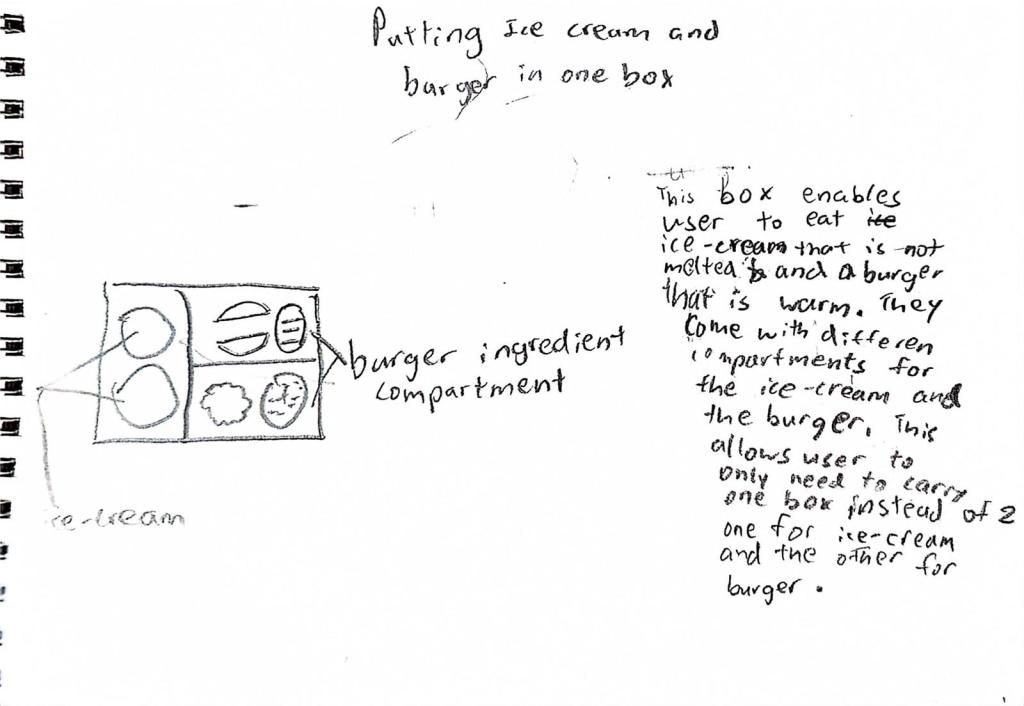 Putting Ice cream and
burger in one box
This box enables
user to eat ice
ice-cream that is not
melted & and a burger
that is warm. They
come with differen
compartments for
the ice-cream and
the burger. This
allows user to
only need to carry
one box instead of 2
one for ice-cream
and the other for
burger.
burger ingredient
compartment
ice-cream